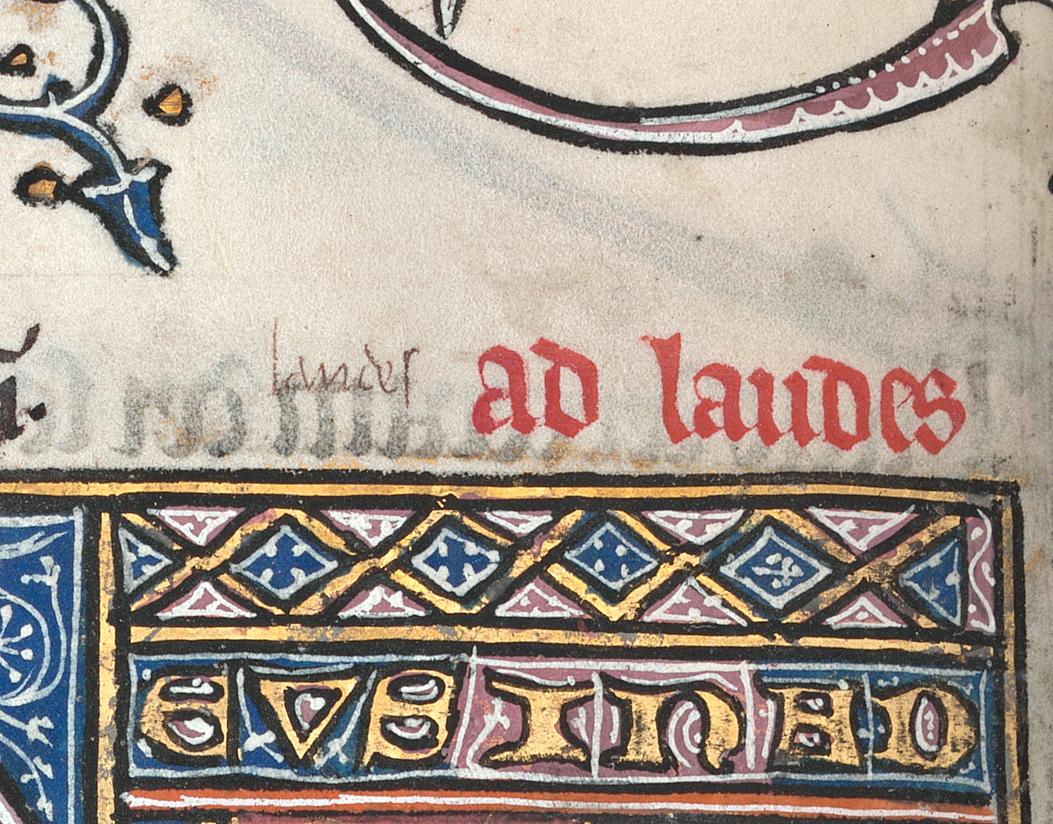 laudes ad laudes
EVS IN AD